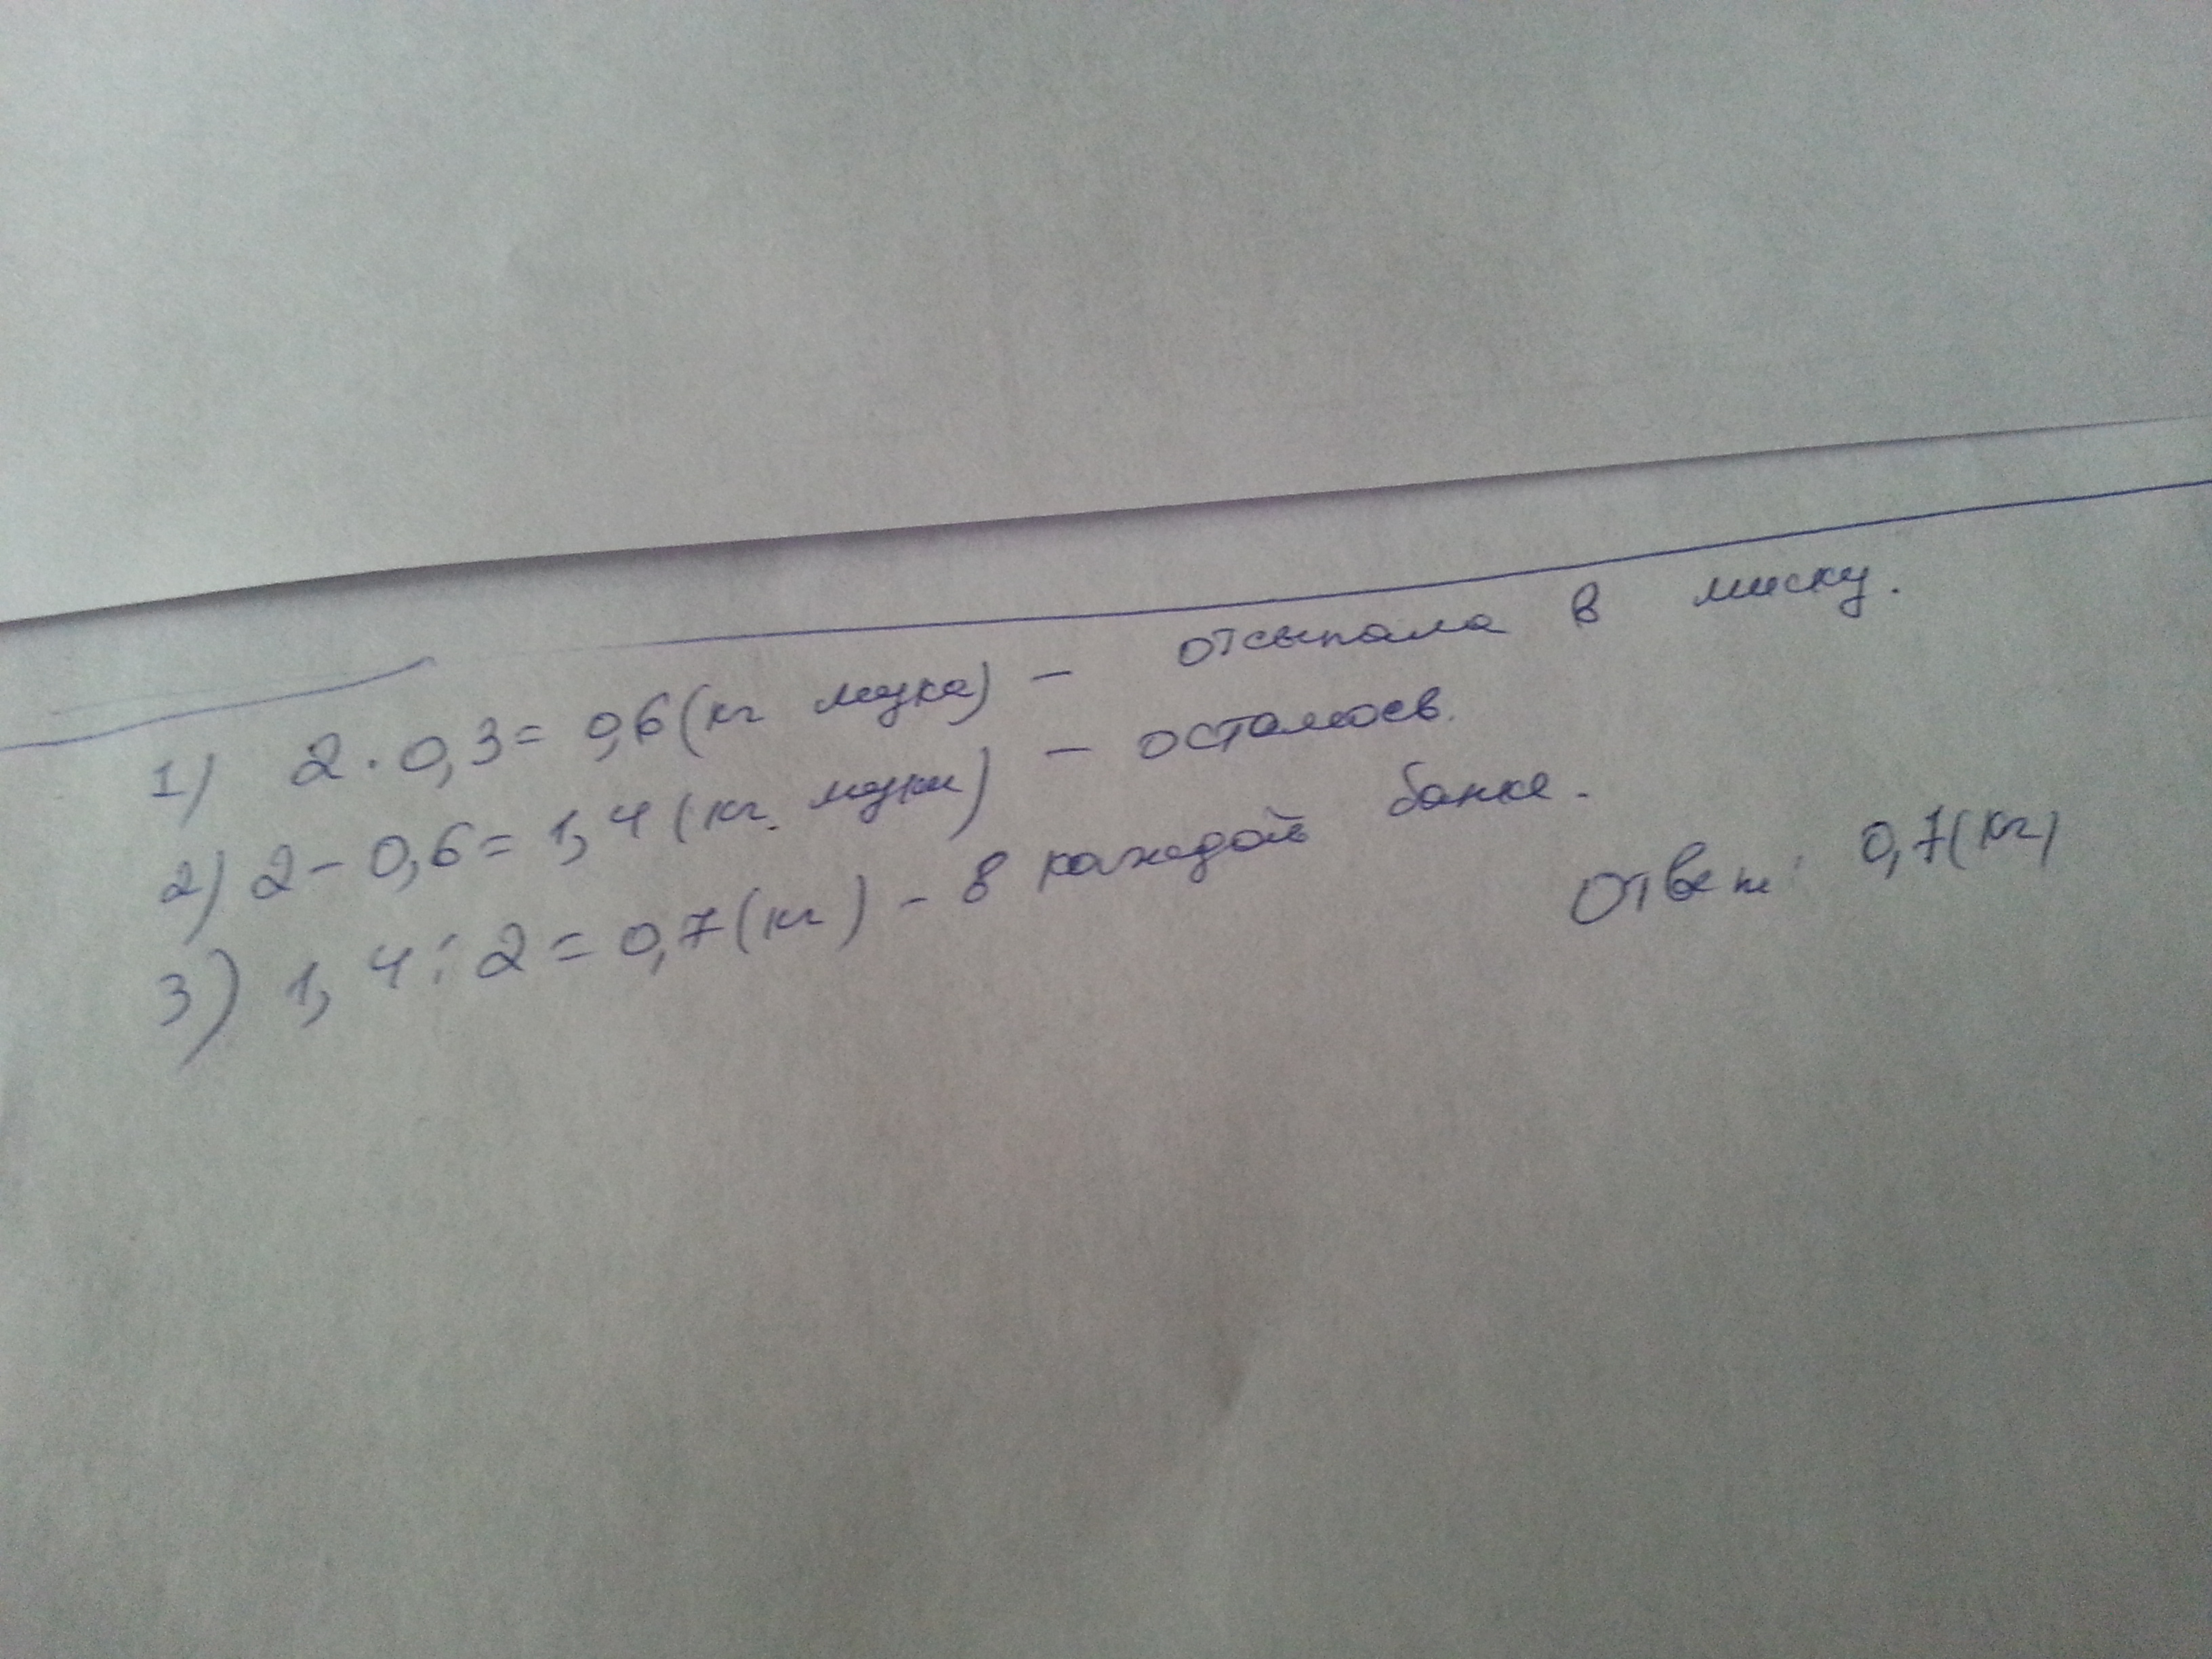 1) 2 · 0,3 = 0,6 (кг мука) - отсыпала в миску.
2) 2 - 0,6 = 1,4 (кг. муки) - осталось.
3) 1,4 : 2 = 0,7 (кг) - в каждой банке.
Ответ: 0,7 (кг)